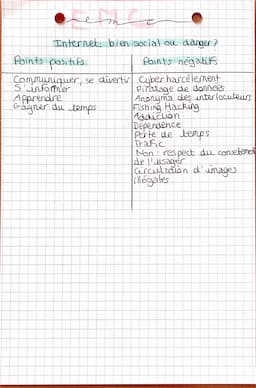 emc
Internet: bien social ou danger?
Points positifs
Points négatifs
Communiquer, se divertir
S'informer
Apprendre
Gagner du temps
Cyber harcèlement
Piratage de données
Anonyma des interlocuteurs
Fishing Hacking
Addiction
Dépendence
Perte de temps
Trafic
Non-respect du
de l'usager
Circulation d'images
illégales